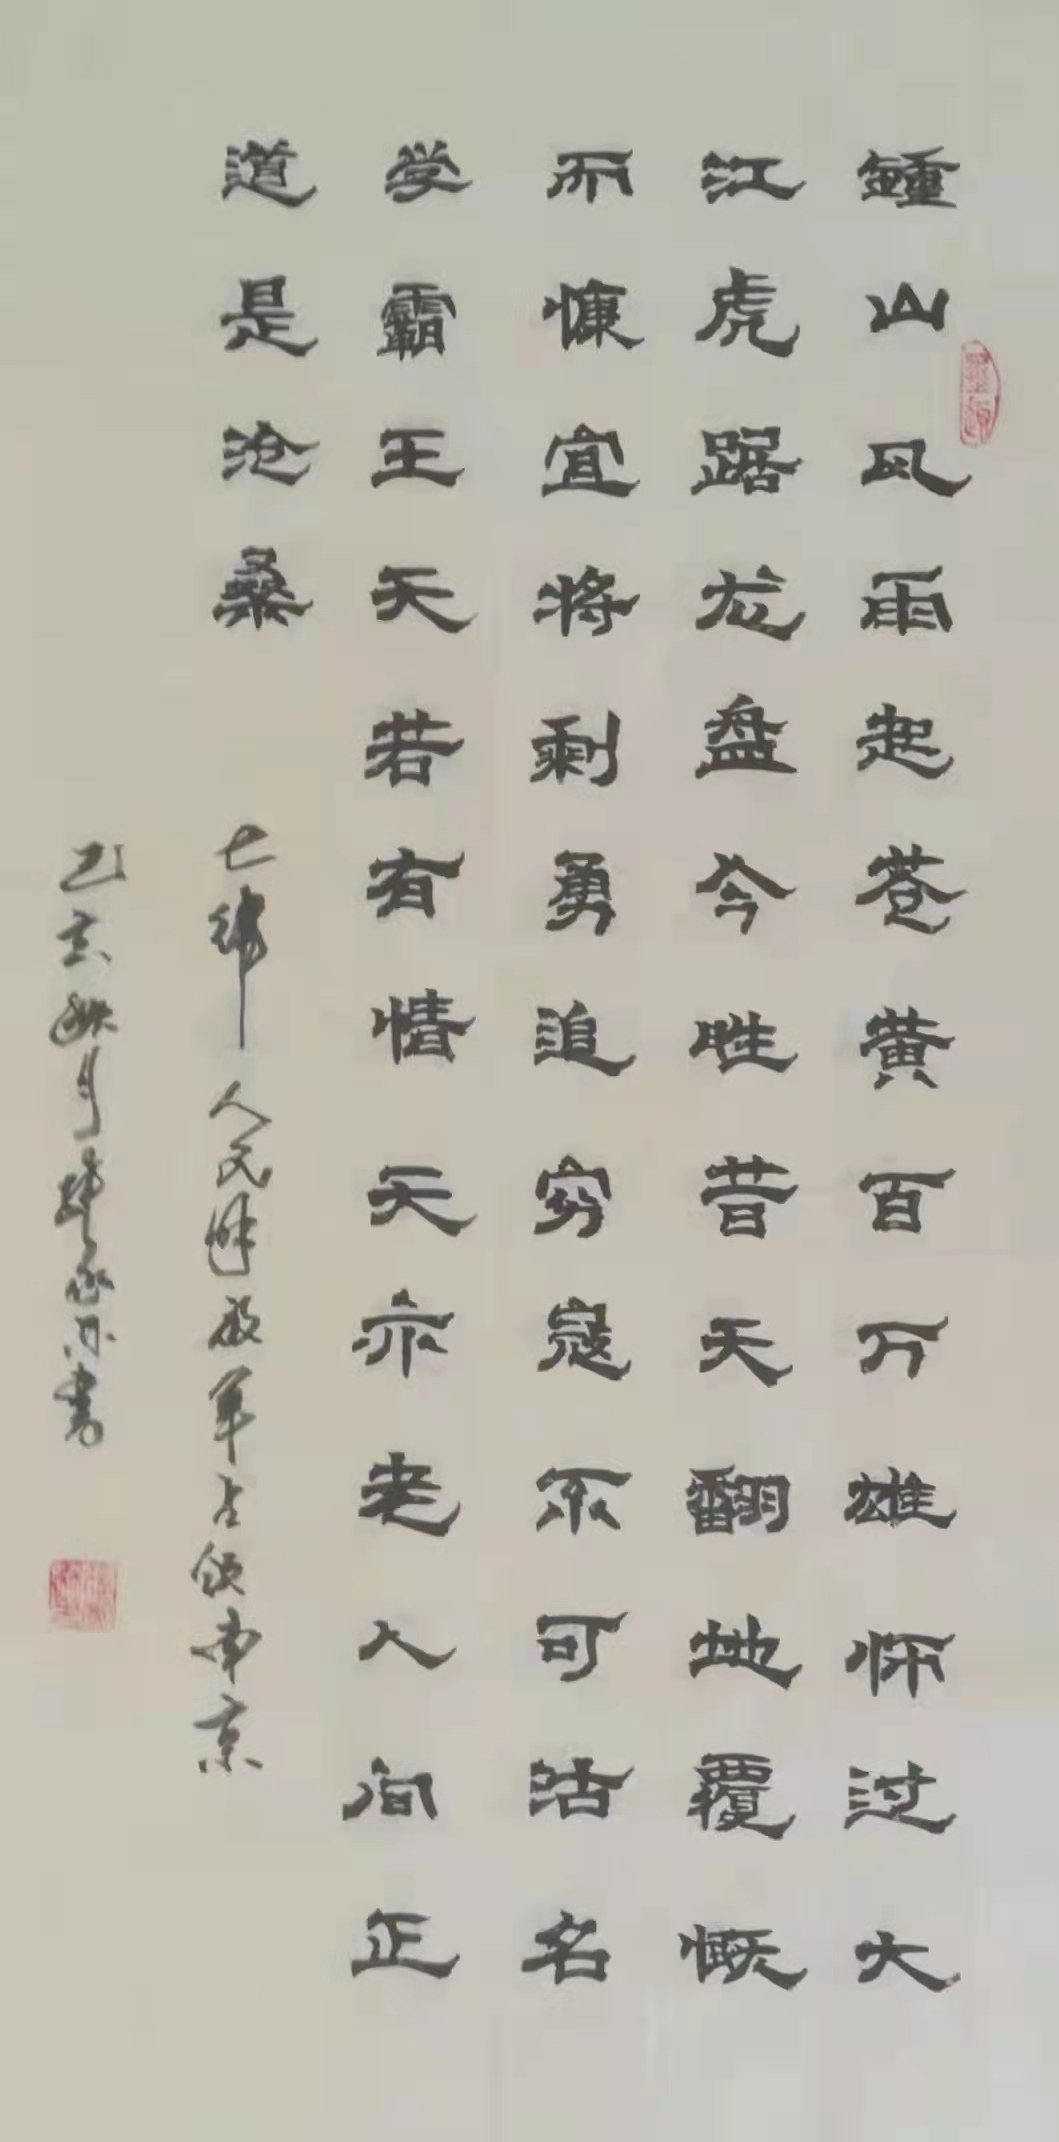 鍾山风雨起苍黄百万雄师过大
江虎踞龙盘今胜昔天翻地覆慨
而慷宜将剩勇追穷寇不可沽名
学霸王天若有情天亦老人间正
道是沧桑
七律 人民解放军占领南京
己亥秋月书